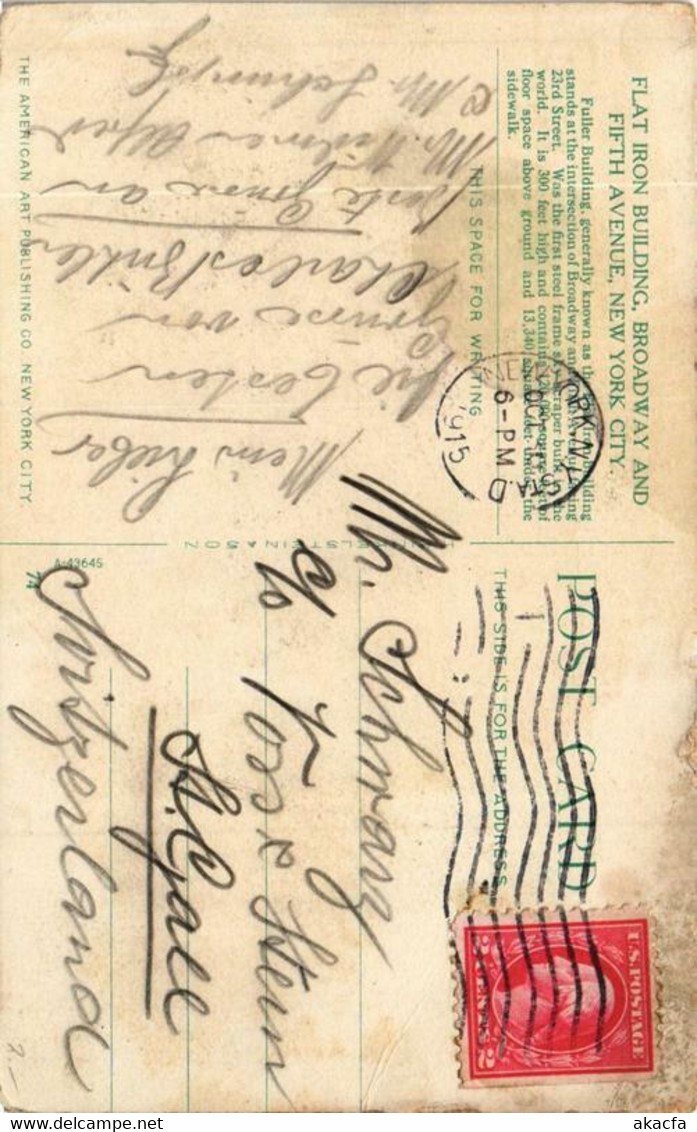 FLAT IRON BUILDING, BROADWAY AND
FIFTH AVENUE, NEW YORK CITY.
Fuller Building, generally known as the Flatiron Building
stands at the intersection of Broadway and
23rd Street. Was the first steel frame skyscraper built in the
world. It is 300 feet high and contains
floor space above ground and 13,340 square feet under the
sidewalk.
THIS SPACE FOR WRITING
Mein Lieber
Die besten
Grüsse von
Charles
beste Grüsse an
Mr. Alfred
& Mr.
THE AMERICAN ART PUBLISHING CO. NEW YORK CITY.
POST CARD
THIS SIDE IS FOR THE ADDRESS
NEW YORK, N.Y.
STA. D
OCT
6-PM
1915
U.S. POSTAGE
2 CENTS 2
Mr. Schwarz
c/o Voss & Stern
St. Gall
Switzerland
A-43645
74
2.-
© akacfa
akacfa